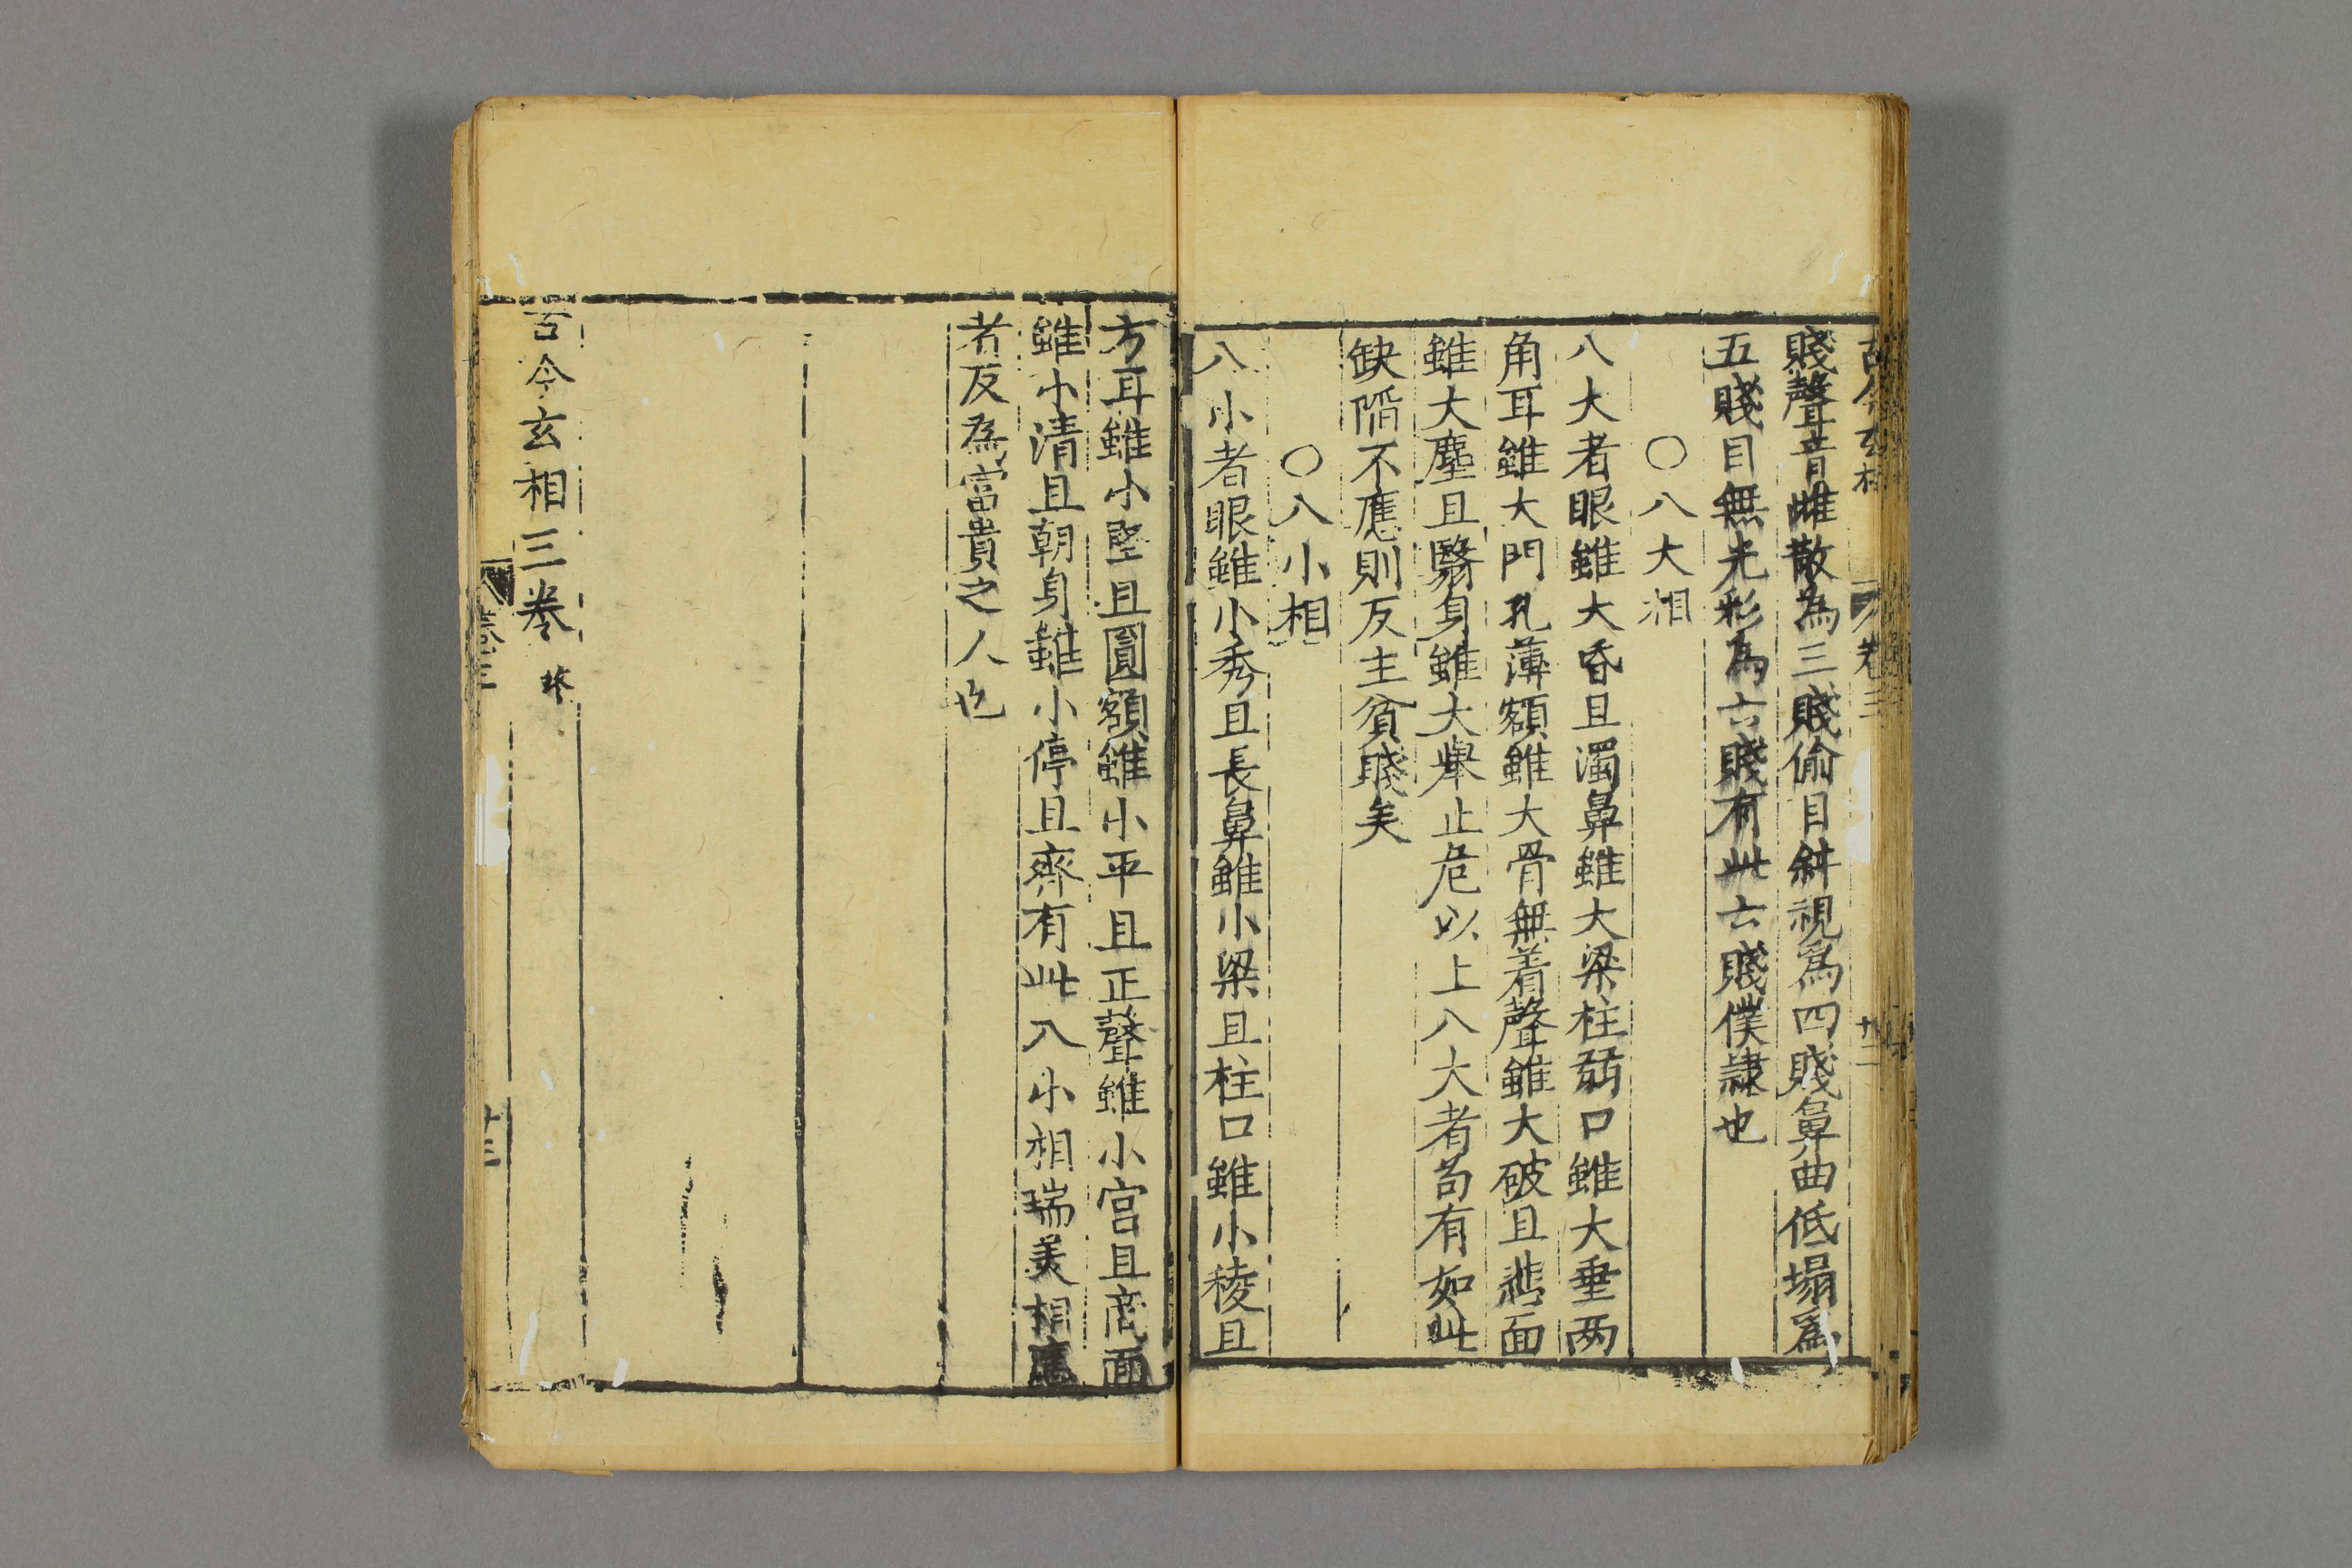 古今玄相 卷三 十二
賤聲音雌散為三賤偷目斜視為四賤鼻曲低塌爲
五賤目無光彩為六賤有此六賤僕隷也
○八大相
八大者眼雖大昏且濁鼻雖大梁柱弱口雖大垂两
角耳雖大門孔薄額雖大骨無着聲雖大破且悲面
雖大塵且翳身雖大舉止危以上八大者苟有如此
缺陷不應則反主貧賤矣
○八小相
八小者眼雖小秀且長鼻雖小梁且柱口雖小稜且
方耳雖小堅且圓額雖小平且正聲雖小宫且商面
雖小清且朝身雖小停且齊有此八小相瑞美相應
者反為富貴之人也
古今玄相三卷 終
卷三 十三